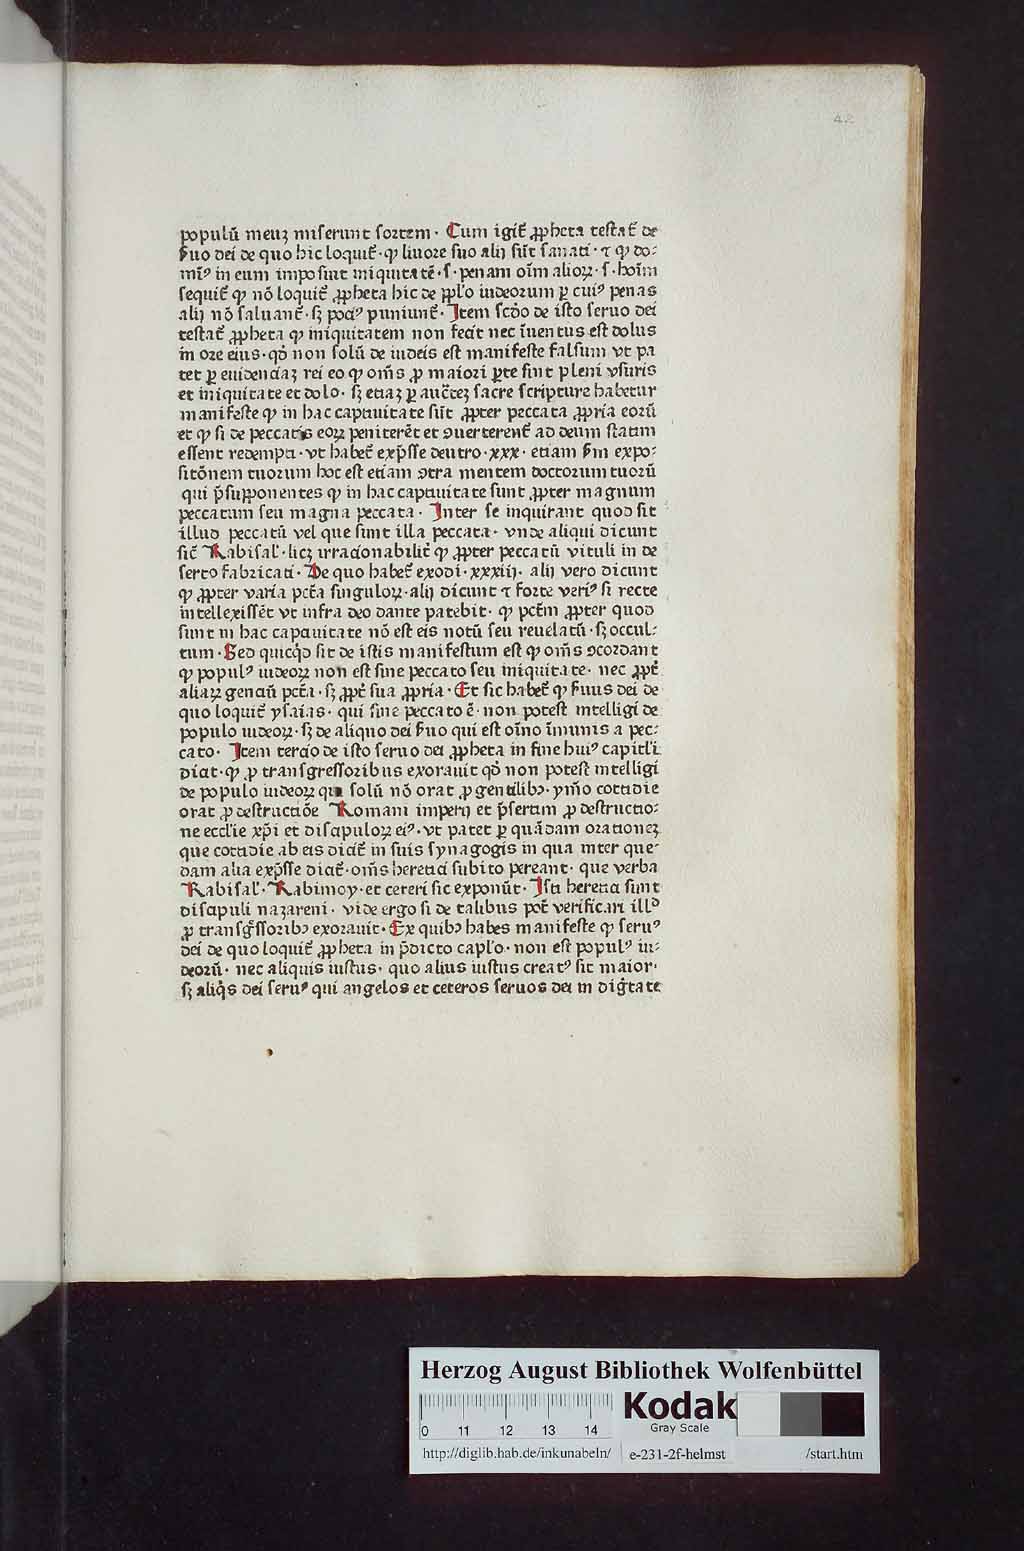 42
populū meuꝫ miserunt sortem · Cum igit̄ ꝓpheta testat̄ de
s̄uo dei de quo hic loquit̄ · ꝙ liuore suo alij sūt sanati · ⁊ ꝙ do⸗
mīꝰ in eum imposuit iniquitatē · s · penam oīm alioꝝ · s · hoīm
sequit̄ ꝙ nō loquit̄ ꝓpheta hic de ppl'o iudeorum ꝑ cuiꝰ penas
alij nō saluant̄ · sꝫ pociꝰ puniunt̄ · Item scd̄o de isto seruo dei
testat̄ ꝓpheta ꝙ iniquitatem non fecit nec īuentus est dolus
in ore eius · qd̄ non solū de iudeis est manifeste falsum vt pa
tet ꝑ euidenciaꝫ rei eo ꝙ om̄s ꝓ maiori ꝑte sint pleni vsuris
et iniquitate et dolo · sꝫ etiaꝫ ꝑ auct̄eꝫ sacre scripture habetur
manifeste ꝙ in hac captiuitate sūt ꝓpter peccata ꝓpria eorū
et ꝙ si de peccatis eoꝝ peniterēt et ꝯuerterent̄ ad deum statim
essent redempti · vt habet̄ exp̄sse deutro · xxx · etiam s̄m expo⸗
sitōnem tuorum hoc est etiam ꝯtra mentem doctorum tuorū
qui p̄supponentes ꝙ in hac captiuitate sunt ꝓpter magnum
peccatum seu magna peccata · Inter se inquirant quod sit
illud peccatū vel que sunt illa peccata · vnde aliqui dicunt
sic̄ Rabisal' · licꝫ irracionabilit̄ ꝙ ꝓpter peccatū vituli in de
serto fabricati · De quo habet̄ exodi · xxxiij · alij vero dicunt
ꝙ ꝓpter varia pct̄a singuloꝝ · alij dicunt ⁊ forte veriꝰ si recte
intellexissēt vt infra deo dante patebit · ꝙ pct̄m ꝓpter quod
sunt in hac captiuitate nō est eis notū seu reuelatū · sꝫ occul⸗
tum · Sed quicq̄d sit de istis manifestum est ꝙ om̄s ꝯcordant
ꝙ populꝰ iudeoꝝ non est sine peccato seu iniquitate · nec ꝓpt̄
aliaꝝ genciū pct̄a · sꝫ ꝓpt̄ sua ꝓpria · Et sic habet̄ ꝙ s̄uus dei de
quo loquit̄ ysaias · qui sine peccato ē · non potest intelligi de
populo iudeoꝝ · sꝫ de aliquo dei s̄uo qui est oīno īmunis a pec⸗
cato · Item tercio de isto seruo dei ꝓpheta in fine huiꝰ capitl'i
dicit · ꝙ ꝓ transgressoribus exorauit qd̄ non potest intelligi
de populo iudeoꝝ qui solū nō orat ꝓ gentilibꝰ · ymō cottidie
orat ꝓ destructiōe Romani imperij et p̄sertim ꝓ destructio⸗
ne eccl'ie xp̄i et discipuloꝝ eiꝰ · vt patet ꝑ quādam orationeꝫ
que cottidie ab eis dicit̄ in suis synagogis in qua inter que⸗
dam alia exp̄sse dicit̄ · om̄s heretici subito pereant · que verba
Rabisal' · Rabimoy · et ceteri sic exponūt · Isti heretici sunt
discipuli nazareni · vide ergo si de talibus pot̄ verificari illd
ꝓ transḡssoribꝰ exorauit · Ex quibꝰ habes manifeste ꝙ seruꝰ
dei de quo loquit̄ ꝓpheta in p̄dicto capl'o · non est populꝰ iu⸗
deorū · nec aliquis iustus · quo alius iustus creatꝰ sit maior ·
sꝫ aliq̄s dei seruꝰ qui angelos et ceteros seruos dei in diḡtate
Herzog August Bibliothek Wolfenbüttel
0 11 12 13 14
Kodak
Gray Scale
http://diglib.hab.de/inkunabeln/ e-231-2f-helmst /start.htm